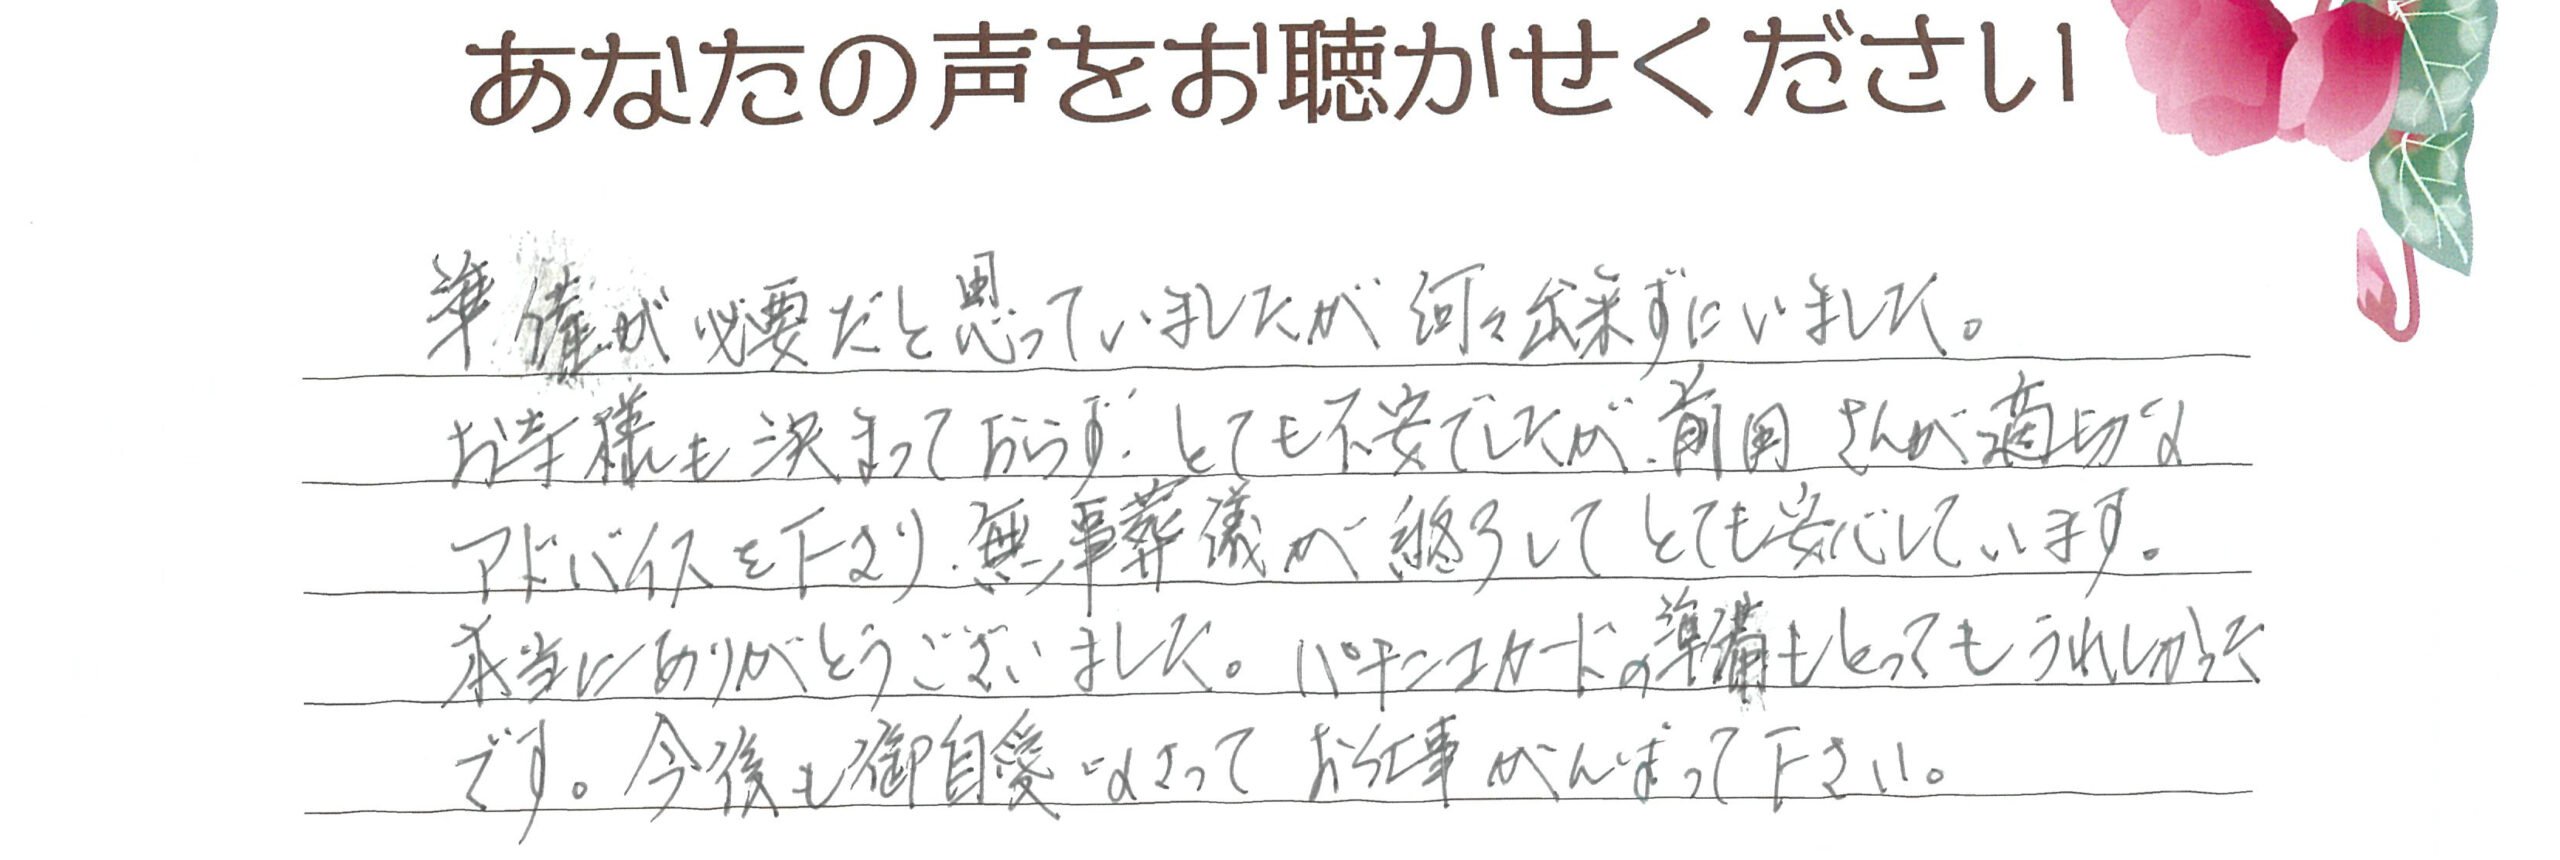 あなたの声をお聴かせください
準備が必要だと思っていましたが何々出来ずにいました。
お寺様も決まっておらず、とても不安でしたが、前田さんが適切な
アドバイスを下さり、無事葬儀が終了してとても安心しています。
本当にありがとうございました。パチンコカードの準備もとってもうれしかった
です。今後も御自愛なさってお仕事がんばって下さい。